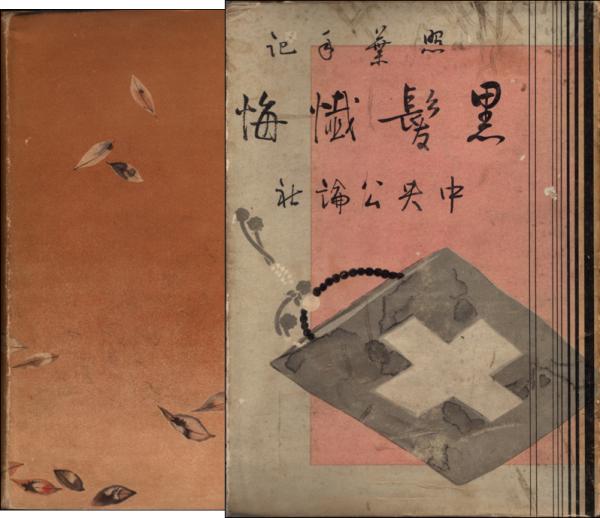 照葉手記
黒髪懺悔
中央公論社